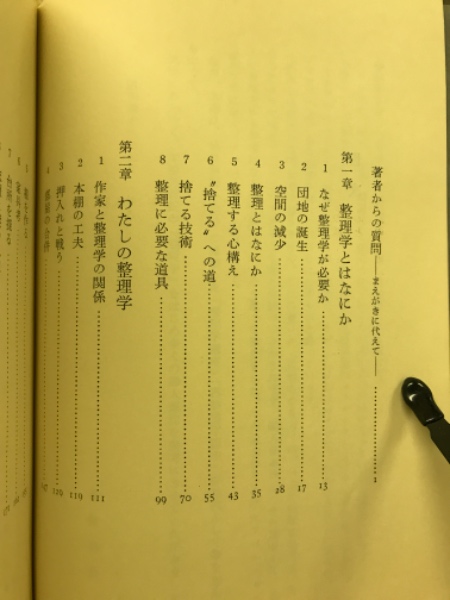 著者からの質問——まえがきに代えて——………1
第一章 整理学とはなにか
1 なぜ整理学が必要か………13
2 団地の誕生………17
3 空間の減少………28
4 整理とはなにか………35
5 整理する心構え………43
6 〝捨てる〟への道………55
7 捨てる技術………70
8 整理に必要な道具………99
第二章 わたしの整理学
1 作家と整理学の関係………111
2 本棚の工夫………119
3 押入れと戦う………129
4
5
6
7